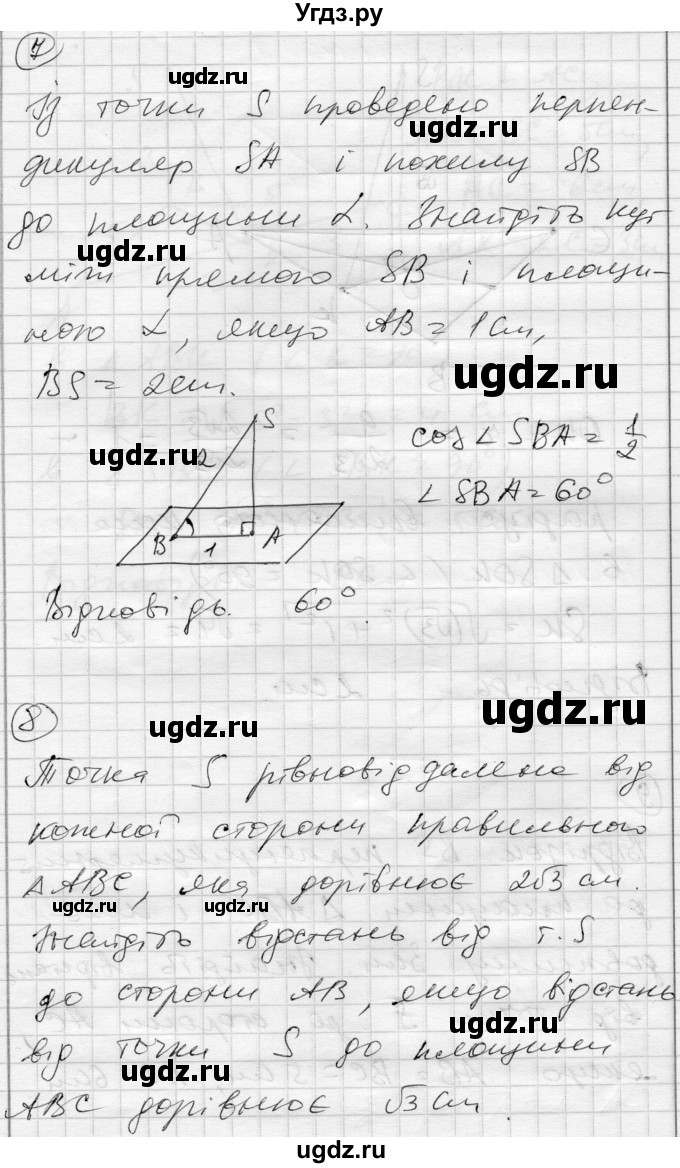 Угдз.ру
7
Із точки S проведено перпен-
дикуляр SA і похилу SB
до площини α. Знайдіть кут
між прямою SB і площи-
ною α, якщо AB = 1 см,
BS = 2 см.
S
2
cos∠SBA = 1/2
∠SBA = 60°
B 1 A
Відповідь. 60°
8
Точка S рівновіддалена від
кожної сторони правильного
△ABC, яка дорівнює 2√3 см.
Знайдіть відстань від т. S
до сторони AB, якщо відстань
від точки S до площини
ABC дорівнює √3 см.
ugdz.ru
ugdz.ru
ugdz.ru
ugdz.ru
ugdz.ru
ugdz.ru
ugdz.ru
ugdz.ru
ugdz.ru
ugdz.ru
ugdz.ru
ugdz.ru
ugdz.ru